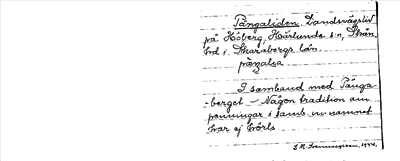 Pångaliden, Landsvägsliv
på Höberg, Härlunda s:n, Skån.
hrd i Skarabergs län.
pàngalsa
I samband med Pånga-
berget – Någon tradition om
penningar i samb. m. namnet
har ej hörts
1934.